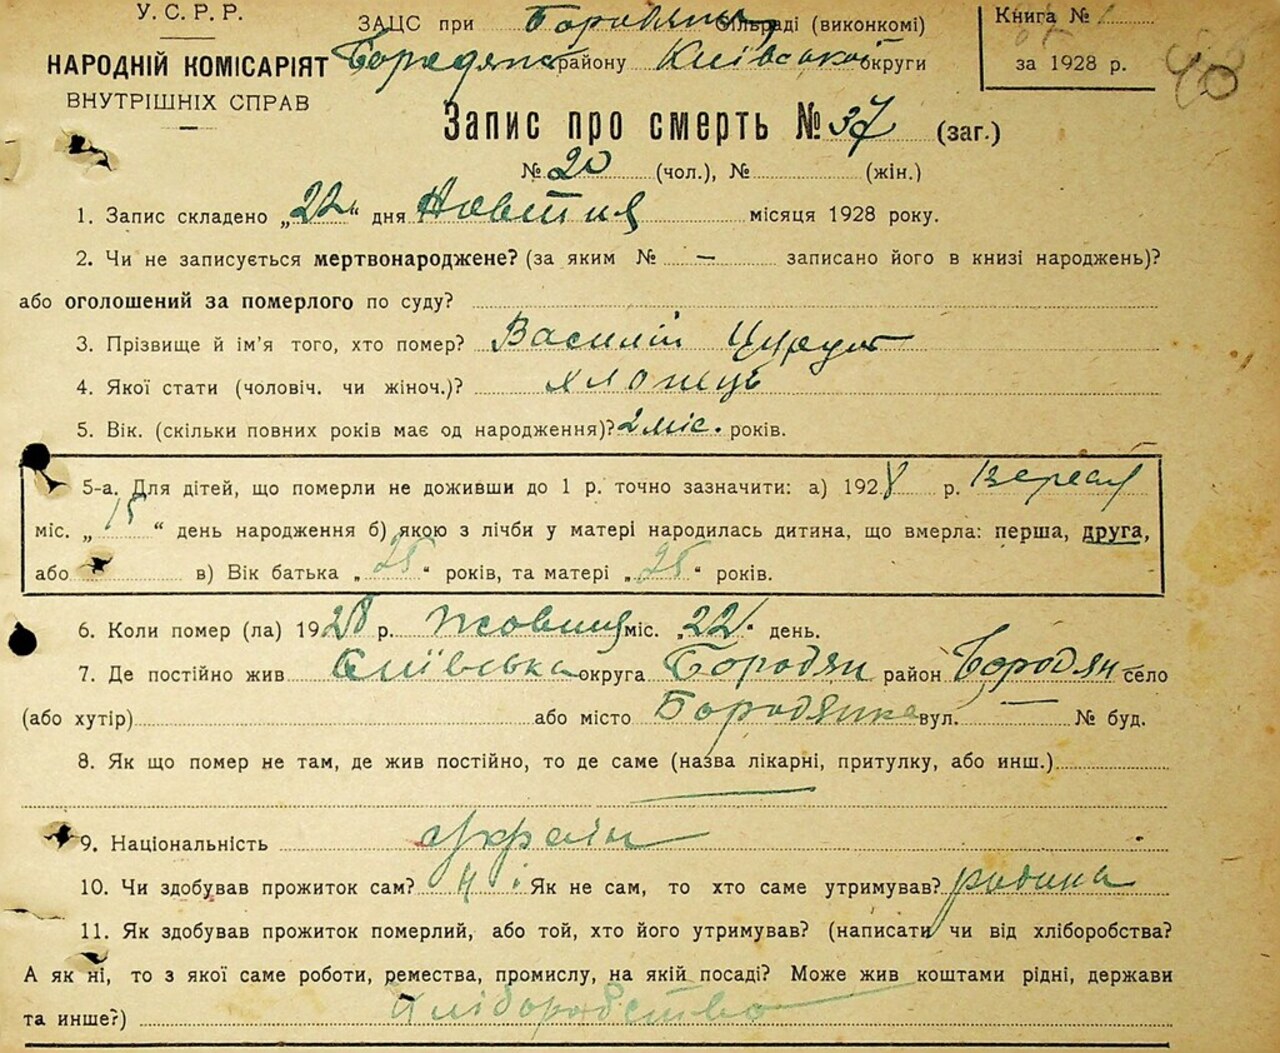 У.С.Р.Р.
НАРОДНІЙ КОМІСАРІЯТ
ВНУТРІШНІХ СПРАВ
ЗАЦС при Сільраді (виконкомі)
району Київської округи
Книга №
за 1928 р.
40
Запис про смерть № 37 (заг.)
№ 20 (чол.), № (жін.)
1. Запис складено „22“ дня місяця 1928 року.
2. Чи не записується мертвонароджене? (за яким № — записано його в книзі народжень)?
або оголошений за померлого по суду?
3. Прізвище й ім'я того, хто помер? Василій
4. Якої стати (чоловіч. чи жіноч.)? хлопець
5. Вік. (скільки повних років має од народження)? 2 міс. років.
5-а. Для дітей, що померли не доживши до 1 р. точно зазначити: а) 1928 р. Вересня
міс. „15“ день народження б) якою з лічби у матері народилась дитина, що вмерла: перша, друга,
або в) Вік батька „25“ років, та матері „25“ років.
6. Коли помер (ла) 1928 р. жовтня міс. „22“ день.
7. Де постійно жив Київська округа Бородян район Бородян село
(або хутір) або місто Бородянка вул. — № буд.
8. Як що помер не там, де жив постійно, то де саме (назва лікарні, притулку, або инш.)
9. Національність україн
10. Чи здобував прожиток сам? ні. Як не сам, то хто саме утримував? родина
11. Як здобував прожиток померлий, або той, хто його утримував? (написати чи від хліборобства?
А як ні, то з якої саме роботи, ремества, промислу, на якій посаді? Може жив коштами рідні, держави
та инше?) хліборобство